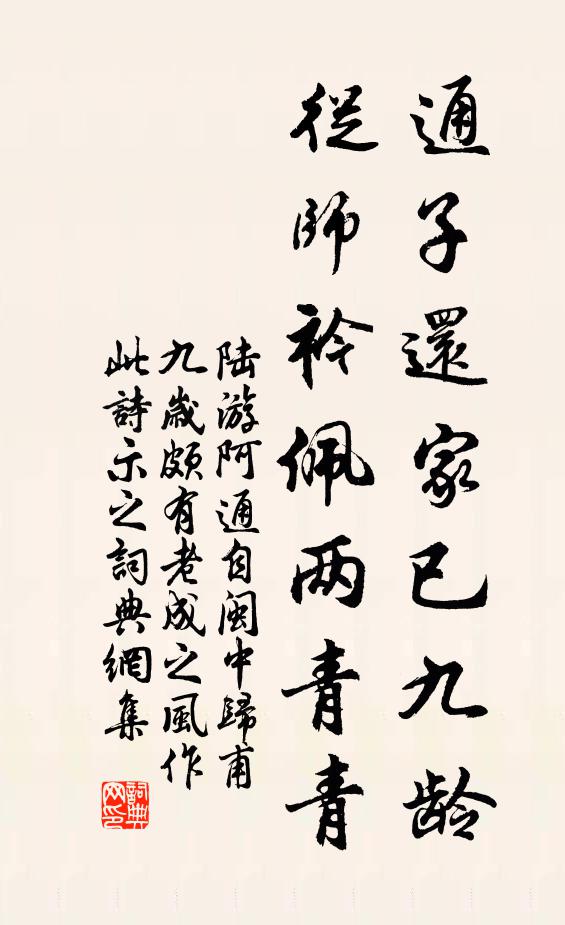 通子還家已九龄
從師衿佩两青青
陆游阿通自闽中歸甫
九歲頗有老成之風作
此詩示之詞典網集
詞典网印